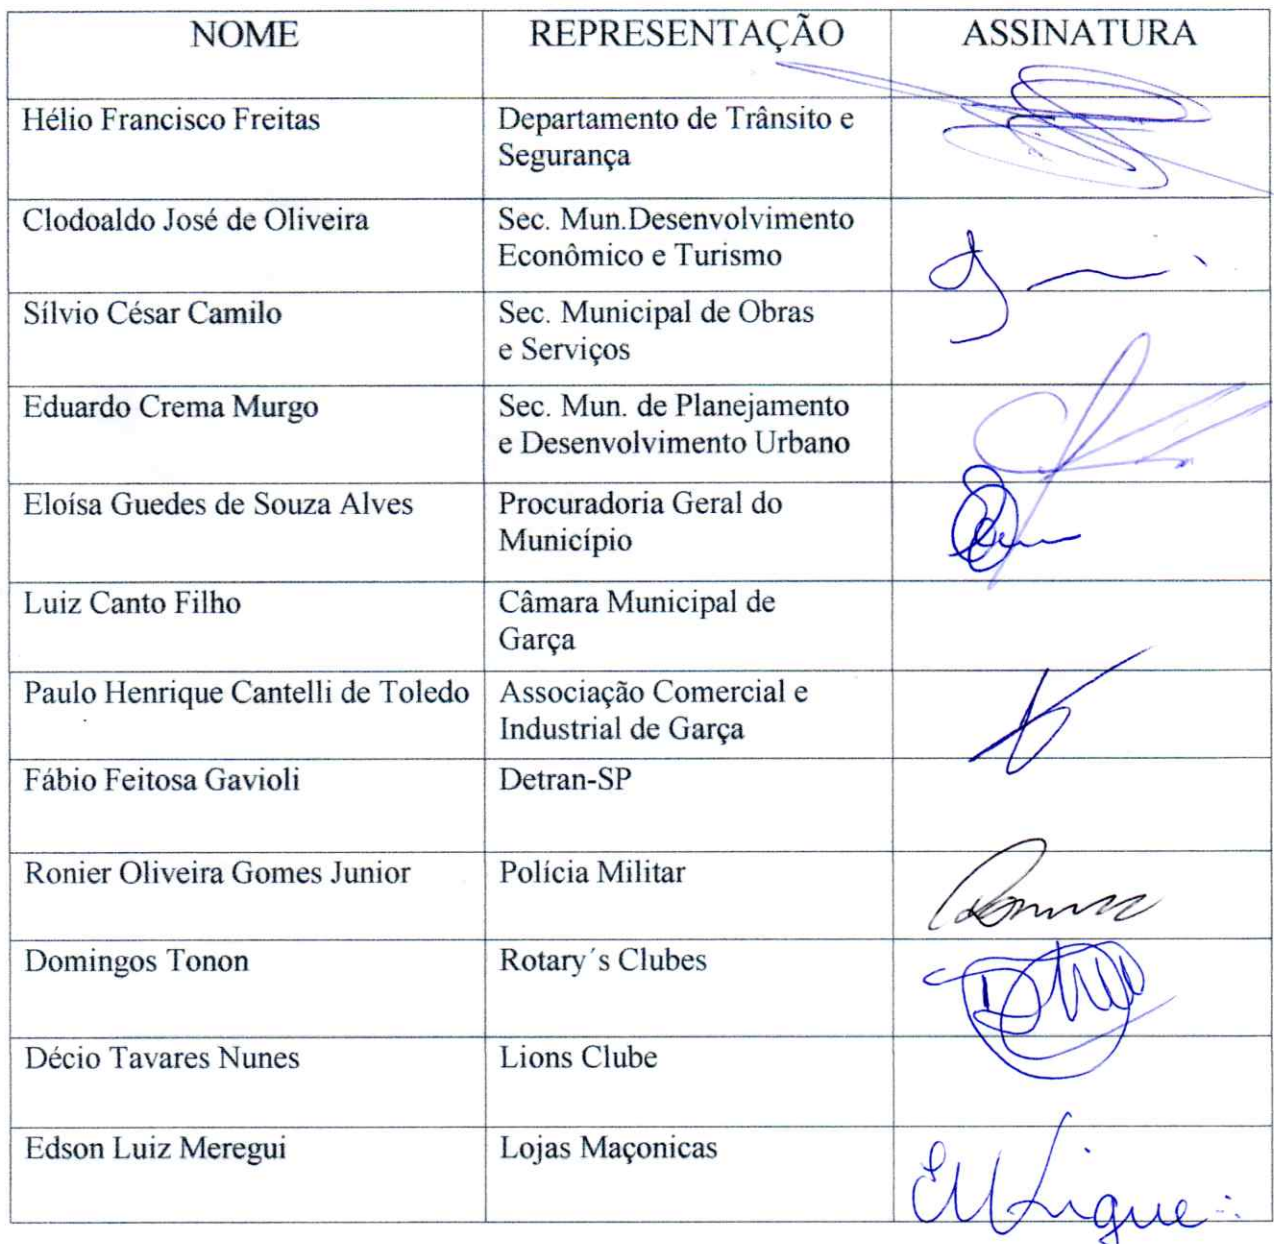 NOME REPRESENTAÇÃO ASSINATURA
Hélio Francisco Freitas Departamento de Trânsito e
Segurança
Clodoaldo José de Oliveira Sec. Mun.Desenvolvimento
Econômico e Turismo
Sílvio César Camilo Sec. Municipal de Obras
e Serviços
Eduardo Crema Murgo Sec. Mun. de Planejamento
e Desenvolvimento Urbano
Eloísa Guedes de Souza Alves Procuradoria Geral do
Município
Luiz Canto Filho Câmara Municipal de
Garça
Paulo Henrique Cantelli de Toledo Associação Comercial e
Industrial de Garça
Fábio Feitosa Gavioli Detran-SP
Ronier Oliveira Gomes Junior Polícia Militar
Domingos Tonon Rotary´s Clubes
Décio Tavares Nunes Lions Clube
Edson Luiz Meregui Lojas Maçonicas